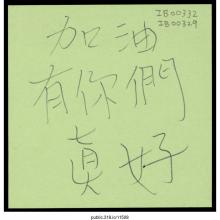 IB00332
IB00329
加油
有你們
真好
public.318.io/11509